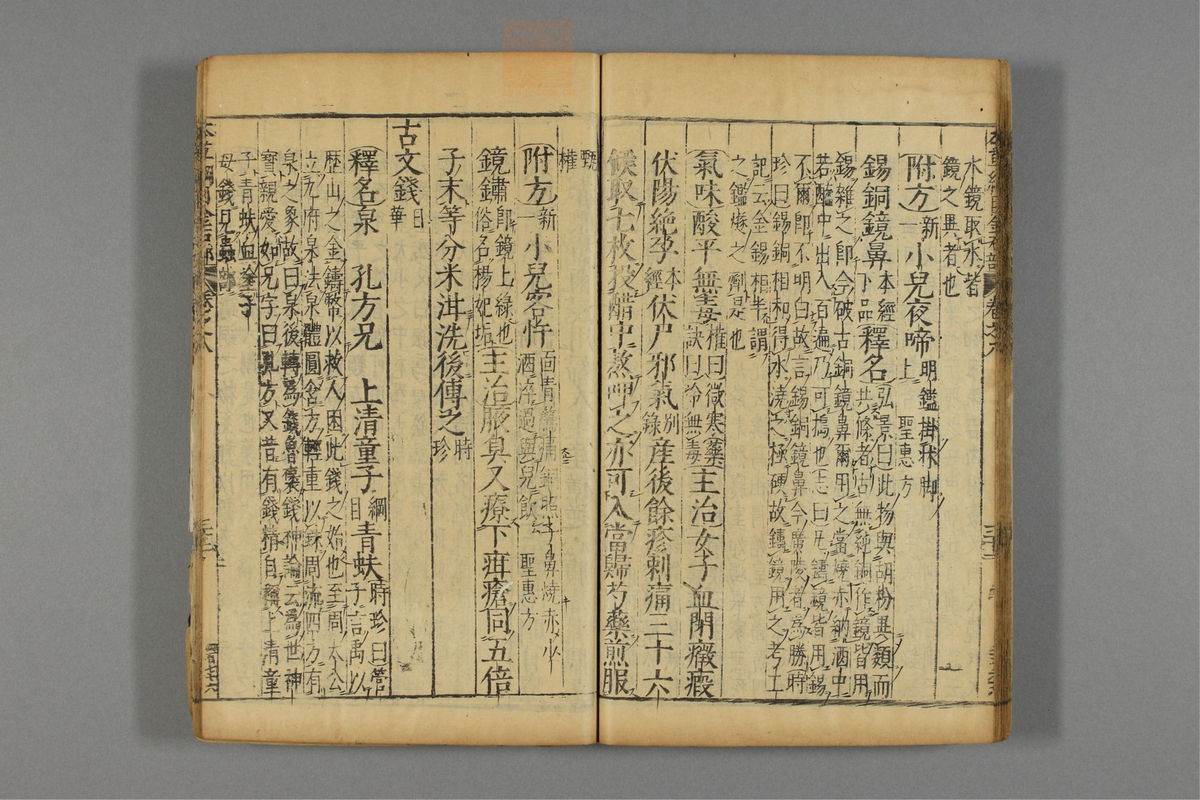 水鏡取水者
鏡之異者也
附方新一小兒夜啼明鑑掛牀脚上聖惠方
錫銅鏡鼻本經下品釋名弘景曰此物與胡粉異類而
共條者古無純銅作鏡皆用
錫雜之即今破古銅鏡鼻爾用之當燒赤納酒中
若醯中出入百遍乃可搗也志曰凡鑄鏡皆用錫
不爾即不明白故言錫銅鏡鼻今廣陵者為勝時
珍曰錫銅相和得水澆之極硬故鑄鏡用之考工
記云金錫相半謂
之鑑燧之劑是也
氣味酸平無毒權曰微寒藥訣曰冷無毒主治女子血閉癥瘕
伏腸絶孕本經伏尸邪氣别錄產後餘疹刺痛三十六
候取七枚投醋中熬呷之亦可入當歸芍藥煎服
甄權
附方新一小兒客忤面青驚痛銅照子鼻燒赤少
酒淬過與兒飲聖惠方
鏡鏽即鏡上綠也俗名楊妃垢主治腋臭又療下疳瘡同五倍
子末等分米泔洗後傅之時珍
古文錢日華
釋名泉 孔方兄 上清童子綱目青蚨時珍曰管子言禹以
歷山之金鑄幣以救人困此錢之始也至周太公
立九府泉法泉體圓含方輕重以銖周流四方有
泉之象故曰泉後轉為錢魯褒錢神論云為世神
寶親愛如兄字曰孔方又昔有錢精自稱上清童
子青蚨血塗子
母錢見蟲部